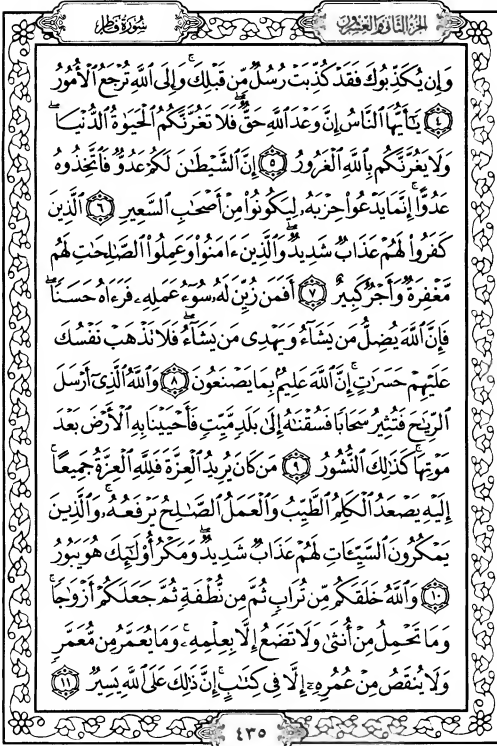 سُورَةُ فَاطِرٍ الجُزْءُ الثَّانِي وَالعِشْرُونَ
وَإِن يُكَذِّبُوكَ فَقَدْ كُذِّبَتْ رُسُلٌ مِّن قَبْلِكَ ۚ وَإِلَى ٱللَّهِ تُرْجَعُ ٱلْأُمُورُ
﴿٤﴾ يَٰٓأَيُّهَا ٱلنَّاسُ إِنَّ وَعْدَ ٱللَّهِ حَقٌّ ۖ فَلَا تَغُرَّنَّكُمُ ٱلْحَيَوٰةُ ٱلدُّنْيَا ۖ
وَلَا يَغُرَّنَّكُم بِٱللَّهِ ٱلْغَرُورُ ﴿٥﴾ إِنَّ ٱلشَّيْطَٰنَ لَكُمْ عَدُوٌّ فَٱتَّخِذُوهُ
عَدُوًّا ۚ إِنَّمَا يَدْعُوا۟ حِزْبَهُۥ لِيَكُونُوا۟ مِنْ أَصْحَٰبِ ٱلسَّعِيرِ ﴿٦﴾ ٱلَّذِينَ
كَفَرُوا۟ لَهُمْ عَذَابٌ شَدِيدٌ ۖ وَٱلَّذِينَ ءَامَنُوا۟ وَعَمِلُوا۟ ٱلصَّٰلِحَٰتِ لَهُم
مَّغْفِرَةٌ وَأَجْرٌ كَبِيرٌ ﴿٧﴾ أَفَمَن زُيِّنَ لَهُۥ سُوٓءُ عَمَلِهِۦ فَرَءَاهُ حَسَنًا ۖ
فَإِنَّ ٱللَّهَ يُضِلُّ مَن يَشَآءُ وَيَهْدِى مَن يَشَآءُ ۖ فَلَا تَذْهَبْ نَفْسُكَ
عَلَيْهِمْ حَسَرَٰتٍ ۚ إِنَّ ٱللَّهَ عَلِيمٌۢ بِمَا يَصْنَعُونَ ﴿٨﴾ وَٱللَّهُ ٱلَّذِىٓ أَرْسَلَ
ٱلرِّيَٰحَ فَتُثِيرُ سَحَابًا فَسُقْنَٰهُ إِلَىٰ بَلَدٍ مَّيِّتٍ فَأَحْيَيْنَا بِهِ ٱلْأَرْضَ بَعْدَ
مَوْتِهَا ۚ كَذَٰلِكَ ٱلنُّشُورُ ﴿٩﴾ مَن كَانَ يُرِيدُ ٱلْعِزَّةَ فَلِلَّهِ ٱلْعِزَّةُ جَمِيعًا ۚ
إِلَيْهِ يَصْعَدُ ٱلْكَلِمُ ٱلطَّيِّبُ وَٱلْعَمَلُ ٱلصَّٰلِحُ يَرْفَعُهُۥ ۚ وَٱلَّذِينَ
يَمْكُرُونَ ٱلسَّيِّـَٔاتِ لَهُمْ عَذَابٌ شَدِيدٌ ۖ وَمَكْرُ أُو۟لَٰٓئِكَ هُوَ يَبُورُ
﴿١٠﴾ وَٱللَّهُ خَلَقَكُم مِّن تُرَابٍ ثُمَّ مِن نُّطْفَةٍ ثُمَّ جَعَلَكُمْ أَزْوَٰجًا ۚ
وَمَا تَحْمِلُ مِنْ أُنثَىٰ وَلَا تَضَعُ إِلَّا بِعِلْمِهِۦ ۚ وَمَا يُعَمَّرُ مِن مُّعَمَّرٍ
وَلَا يُنقَصُ مِنْ عُمُرِهِۦٓ إِلَّا فِى كِتَٰبٍ ۚ إِنَّ ذَٰلِكَ عَلَى ٱللَّهِ يَسِيرٌ ﴿١١﴾
٤٣٥